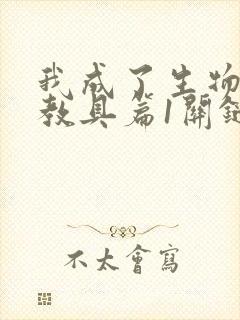 我成了生物
教具篇1關鍵
不太會寫